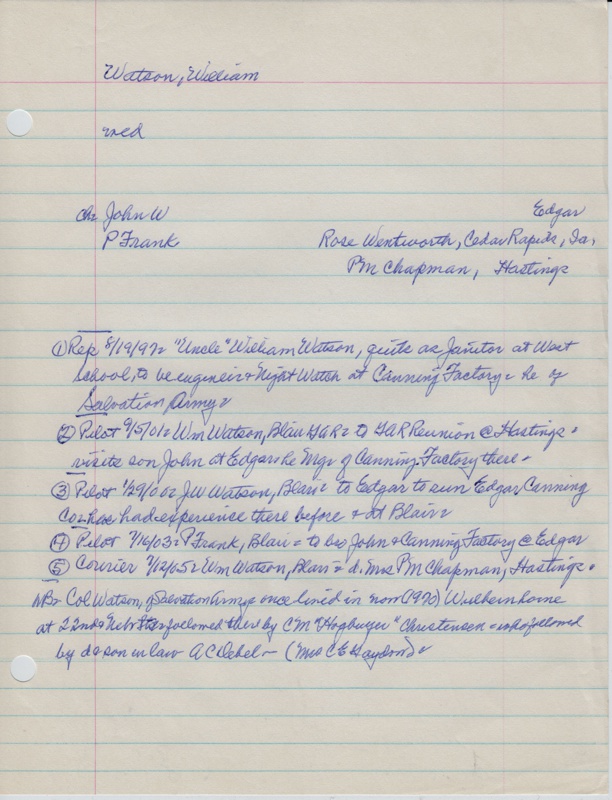 Watson, William
ch John W Edgar
P Frank Rose Wentworth, Cedar Rapids, Ia,
PM Chapman, Hastings
① Rep 8/19/97= "Uncle" William Watson, quits as Janitor at West
school, to be engineir & Night Watch at Canning Factory = he of
Salvation Army =
② Pilot 9/5/01= Wm Watson, Blair GAR = to GAR Reunion @ Hastings =
visits son John at Edgar = he Mgr of Canning Factory there =
③ Pilot 1/29/0 = JW Watson, Blair = to Edgar to run Edgar Canning
Co = has had experience there before & at Blair =
④ Pilot 7/16/03= P Frank, Blair = to bro John & Canning Factory @ Edgar
⑤ Courier 7/12/05= Wm Watson, Blair = d. Mrs PM Chapman, Hastings =
NB= Col Watson, of Salvation Army = once lived in now (1970) home
at 22nd & Nebr Sts = followed there by CM "Christensen = who followed
by d & son in law A C Debel = (Mrs C E Haydon) =